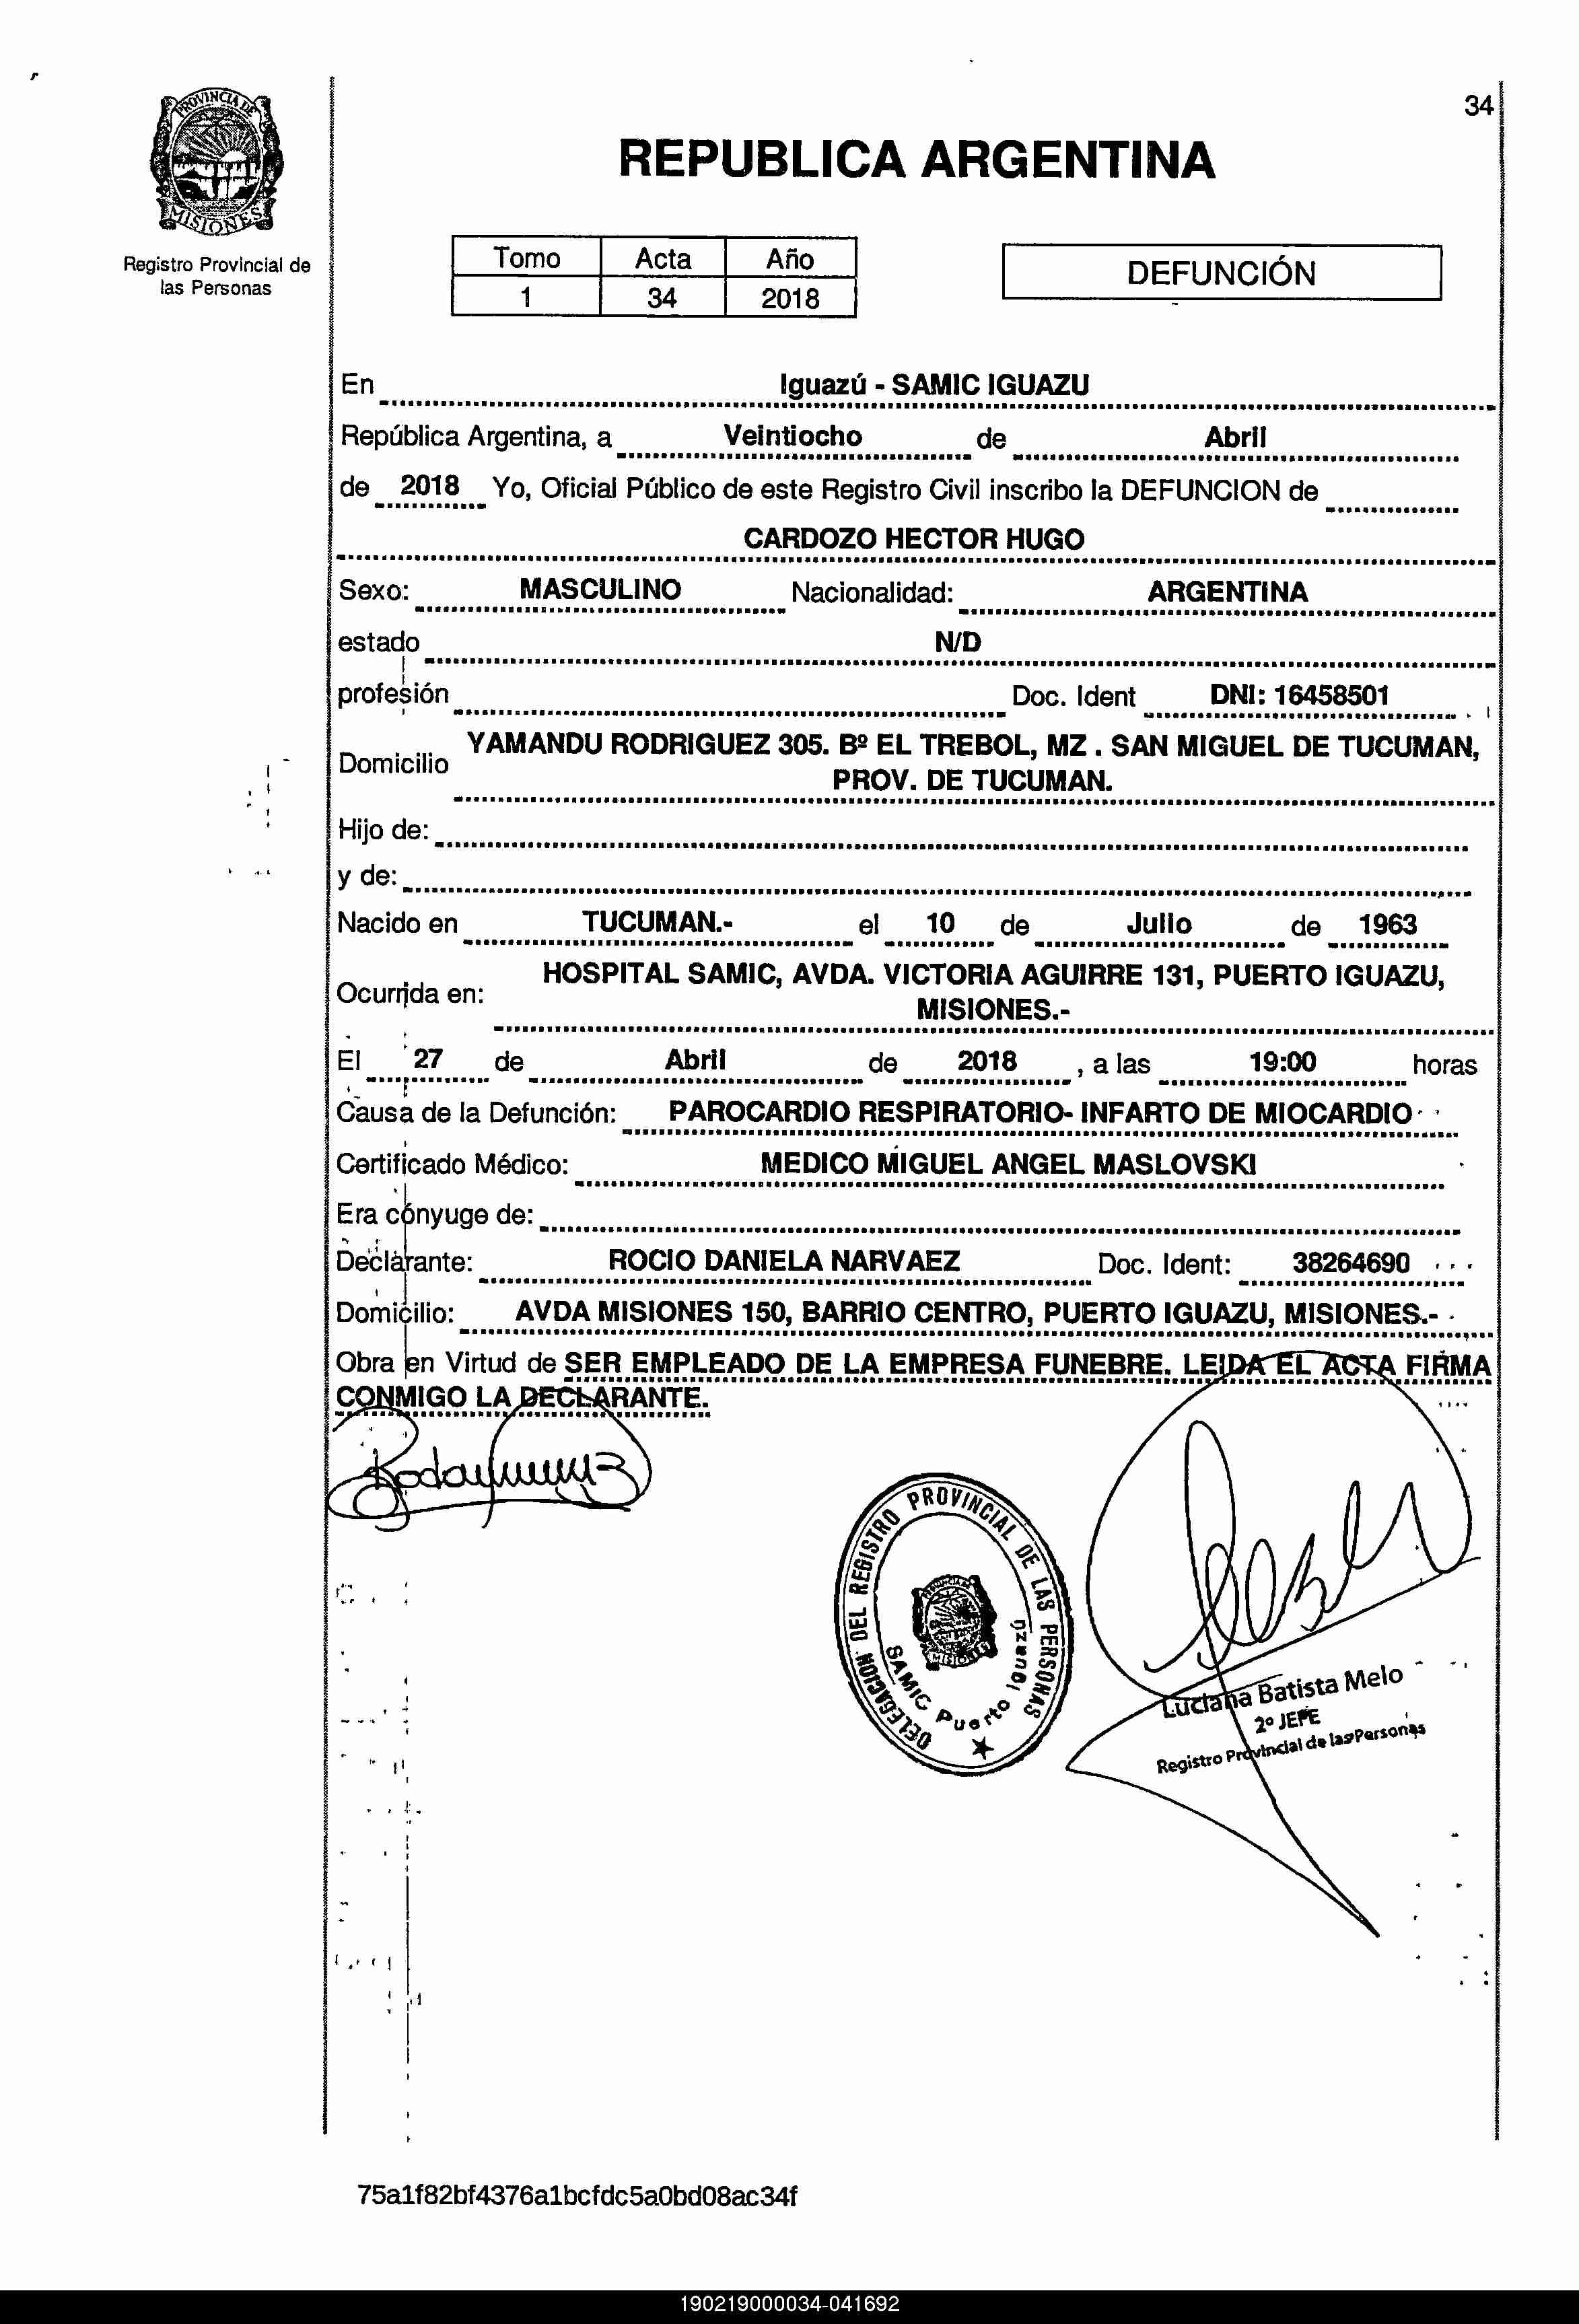 34
PROVINCIA DE
MISIONES
Registro Provincial de
las Personas
REPUBLICA ARGENTINA
Tomo Acta Año
1 34 2018
DEFUNCIÓN
En Iguazú - SAMIC IGUAZU
República Argentina, a Veintiocho de Abril
de 2018 Yo, Oficial Público de este Registro Civil inscribo la DEFUNCION de
CARDOZO HECTOR HUGO
Sexo: MASCULINO Nacionalidad: ARGENTINA
estado N/D
profesión Doc. Ident DNI: 16458501
Domicilio YAMANDU RODRIGUEZ 305. Bº EL TREBOL, MZ . SAN MIGUEL DE TUCUMAN,
PROV. DE TUCUMAN.
Hijo de:
y de:
Nacido en TUCUMAN.- el 10 de Julio de 1963
Ocurrida en: HOSPITAL SAMIC, AVDA. VICTORIA AGUIRRE 131, PUERTO IGUAZU,
MISIONES.-
El 27 de Abril de 2018 , a las 19:00 horas
Causa de la Defunción: PAROCARDIO RESPIRATORIO- INFARTO DE MIOCARDIO
Certificado Médico: MEDICO MIGUEL ANGEL MASLOVSKI
Era cónyuge de:
Declarante: ROCIO DANIELA NARVAEZ Doc. Ident: 38264690
Domicilio: AVDA MISIONES 150, BARRIO CENTRO, PUERTO IGUAZU, MISIONES.-
Obra en Virtud de SER EMPLEADO DE LA EMPRESA FUNEBRE. LEIDA EL ACTA FIRMA
CONMIGO LA DECLARANTE.
DELEGACION DEL REGISTRO PROVINCIAL DE LAS PERSONAS
SAMIC Puerto Iguazu
Luciana Batista Melo
2º JEFE
Registro Provincial de las Personas
75a1f82bf4376a1bcfdc5a0bd08ac34f
190219000034-041692